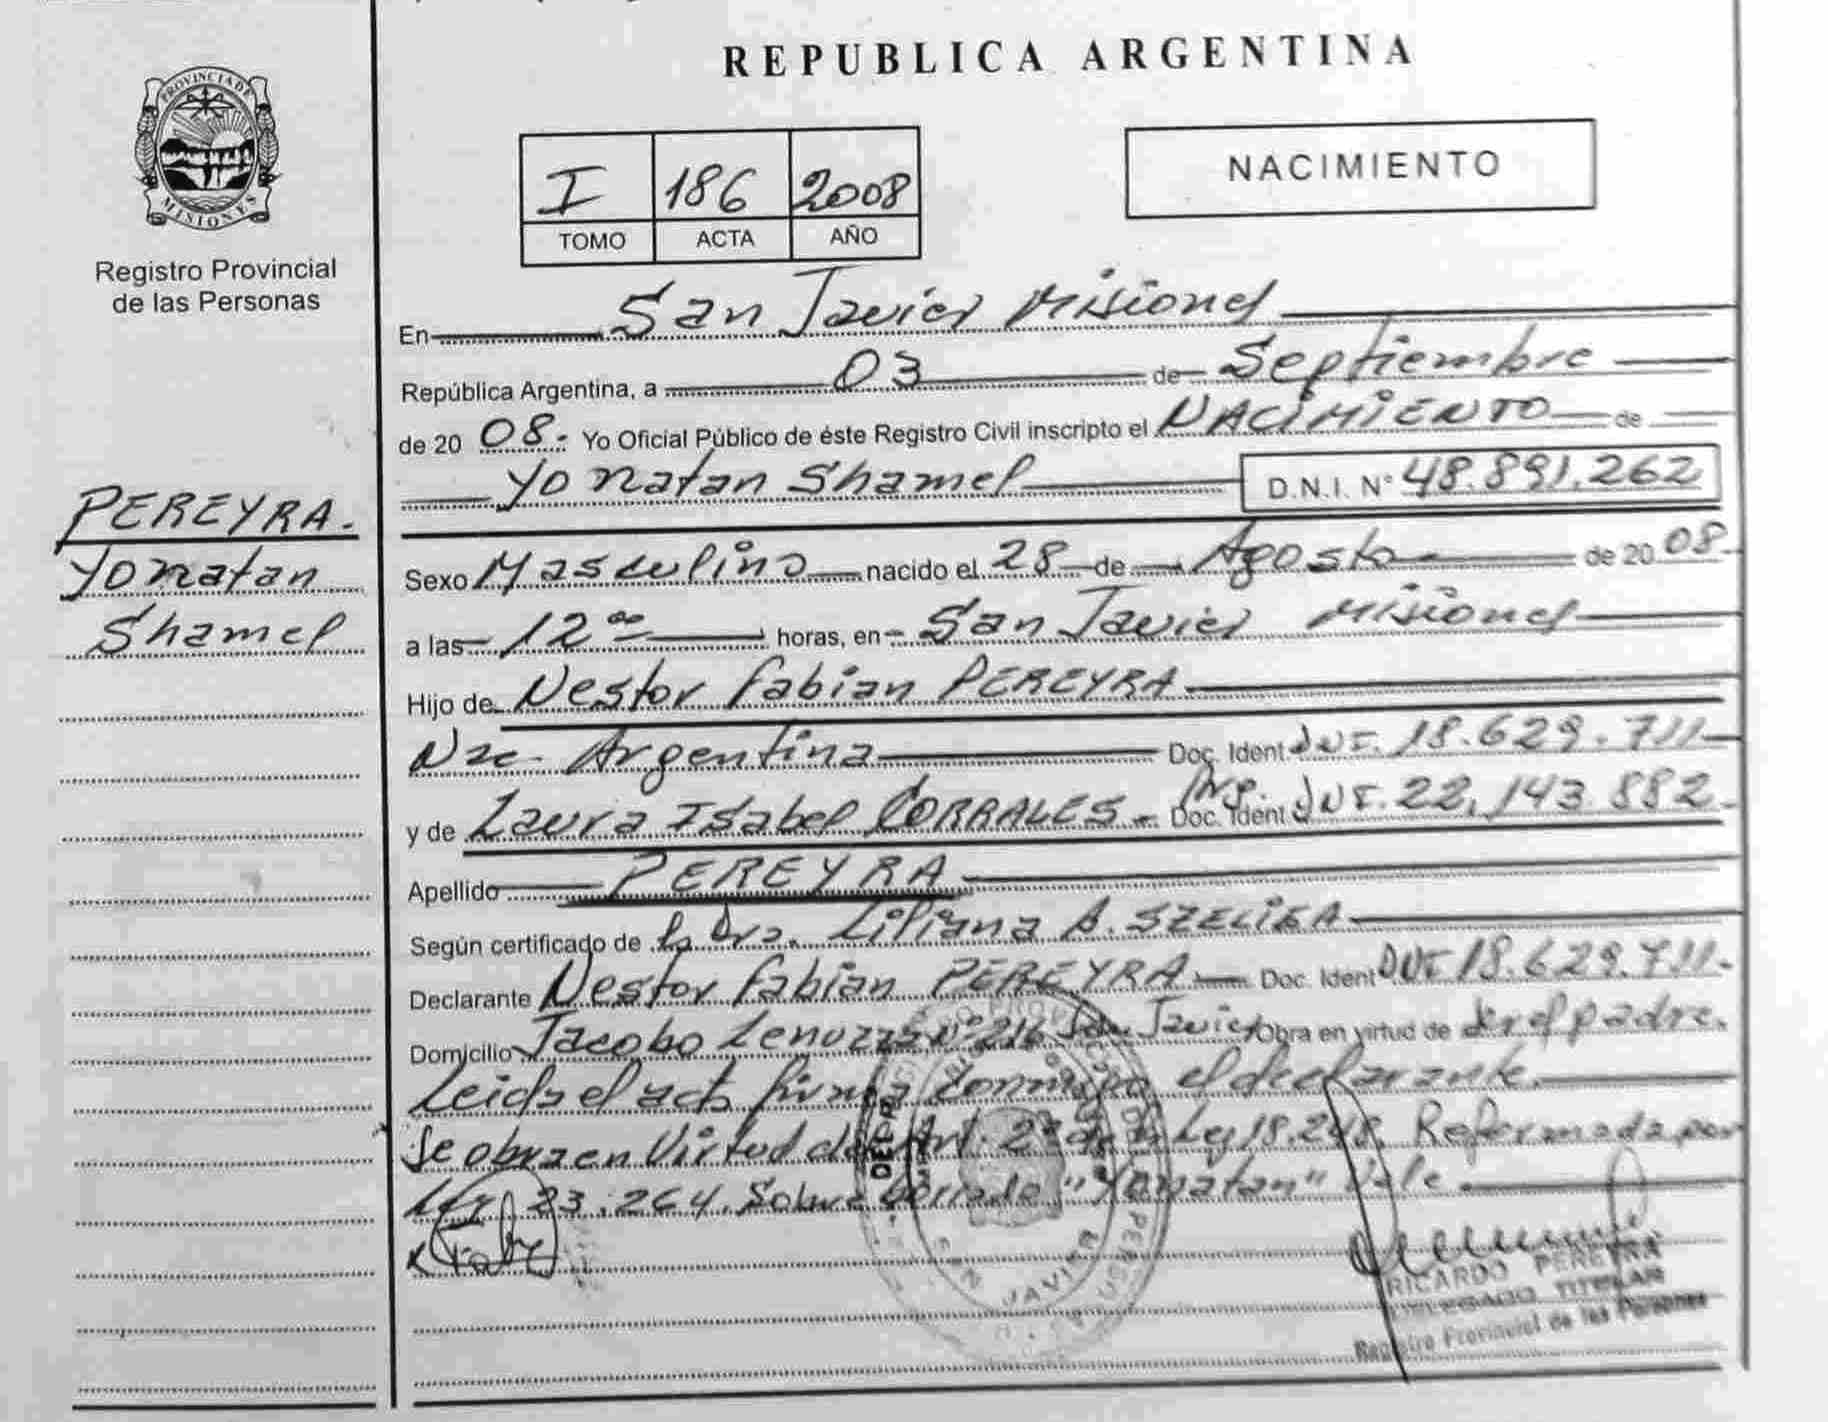 PROVINCIA DE
MISIONES
Registro Provincial
de las Personas
PEREYRA.
Yonatan
Shamel
REPUBLICA ARGENTINA
I 186 2008
TOMO ACTA AÑO
NACIMIENTO
En San Javier Misiones
República Argentina, a 03 de Septiembre
de 20 08.- Yo Oficial Público de éste Registro Civil inscripto el NACIMIENTO de
Yonatan Shamel D.N.I. N° 48.891.262
Sexo Masculino nacido el 28 de Agosto de 20 08
a las 12 °° horas, en San Javier Misiones
Hijo de Nestor Fabian PEREYRA
Nac. Argentina Doc. Ident. DNI. 18.629.711
Arg.
y de Laura Isabel CORRALES - Doc. Ident DNI. 22.143.882
Apellido PEREYRA
Según certificado de la Dra. Liliana A.
Declarante Nestor Fabian PEREYRA Doc. Ident DNI 18.629.711.
Domicilio Jacobo N° 216 San Javier Obra en virtud de ser el padre.
Leida el acta firma conmigo el declarante.
Se obra en Virtud del Art. 2° de la Ley 18.248. Reformada por
Ley 23.264. Sobre borrado "Yonatan" Vale.
RICARDO PEREYRA
DELEGADO TITULAR
Registro Provincial de las Personas